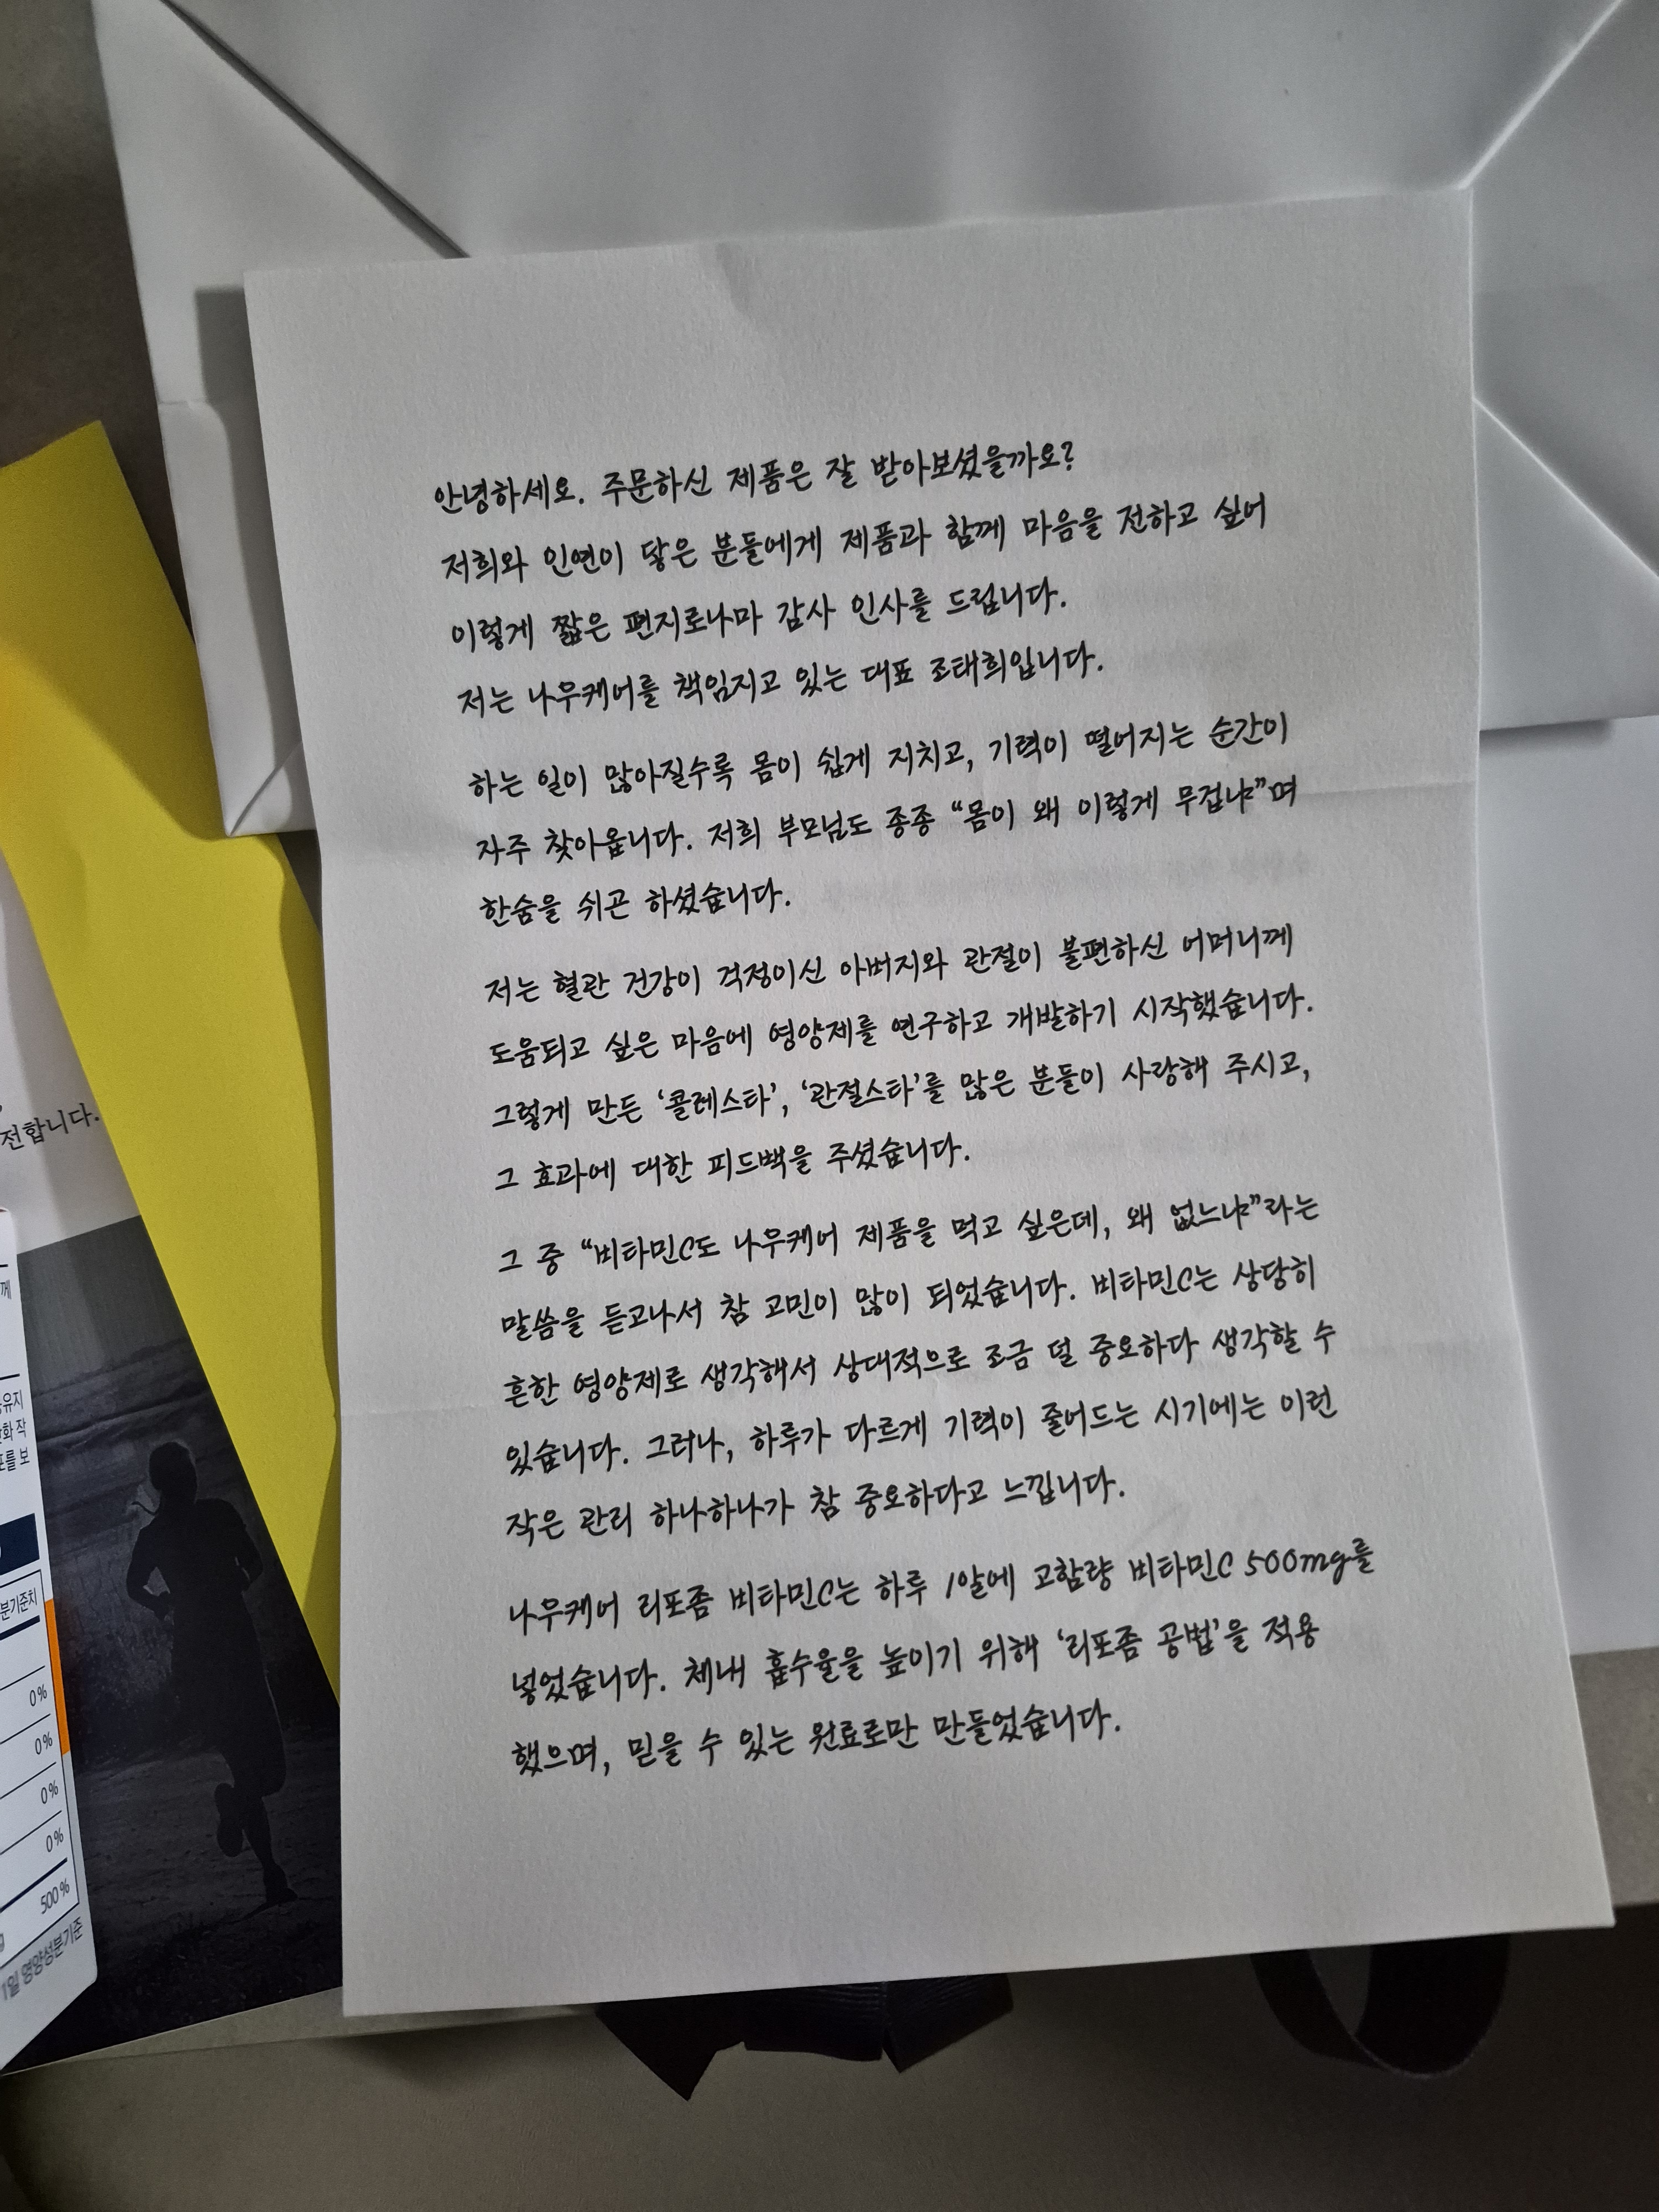 안녕하세요. 주문하신 제품은 잘 받아보셨을까요?
저희와 인연이 닿은 분들에게 제품과 함께 마음을 전하고 싶어
이렇게 짧은 편지로나마 감사 인사를 드립니다.
저는 나우케어를 책임지고 있는 대표 조태희입니다.
하는 일이 많아질수록 몸이 쉽게 지치고, 기력이 떨어지는 순간이
자주 찾아옵니다. 저희 부모님도 종종 “몸이 왜 이렇게 무겁냐”며
한숨을 쉬곤 하셨습니다.
저는 혈관 건강이 걱정이신 아버지와 관절이 불편하신 어머니께
도움되고 싶은 마음에 영양제를 연구하고 개발하기 시작했습니다.
그렇게 만든 ‘콜레스타’, ‘관절스타’를 많은 분들이 사랑해 주시고,
그 효과에 대한 피드백을 주셨습니다.
그 중 “비타민C도 나우케어 제품을 먹고 싶은데, 왜 없느냐”라는
말씀을 듣고나서 참 고민이 많이 되었습니다. 비타민C는 상당히
흔한 영양제로 생각해서 상대적으로 조금 덜 중요하다 생각할 수
있습니다. 그러나, 하루가 다르게 기력이 줄어드는 시기에는 이런
작은 관리 하나하나가 참 중요하다고 느낍니다.
나우케어 리포좀 비타민C는 하루 1알에 고함량 비타민C 500mg를
넣었습니다. 체내 흡수율을 높이기 위해 ‘리포좀 공법’을 적용
했으며, 믿을 수 있는 원료로만 만들었습니다.
전합니다.
께
유지
화 작
를 보
분기준치
0%
0%
0%
0%
500%
1일 영양성분기준